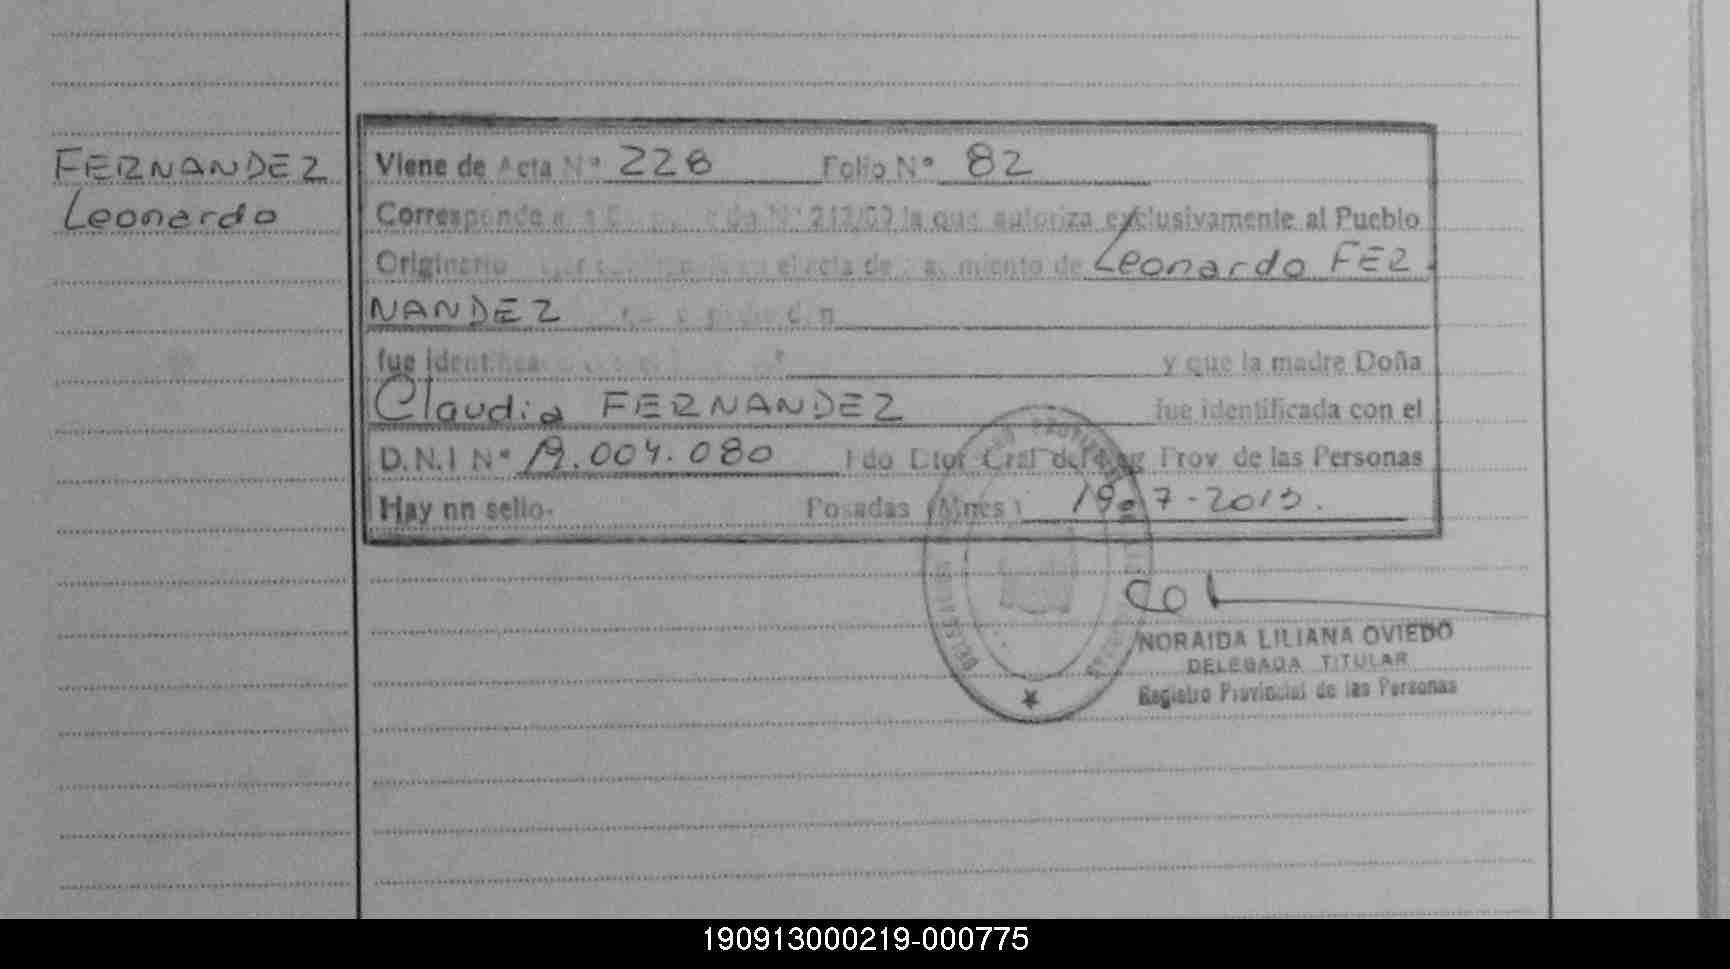 FERNANDEZ
Leonardo
Viene de Acta Nº 228 Folio Nº 82
Corresponde Nº 212/09 la que autoriza exclusivamente al Pueblo
Originario el acta de miento de Leonardo FER
NANDEZ
fue identifica y que la madre Doña
Claudia FERNANDEZ fue identificada con el
D.N.I Nº 19.004.080 Fdo Dtor Gral del Prov de las Personas
Hay nn sello- Posadas (Mnes) 19-7-2013.
NORAIDA LILIANA OVIEDO
DELEGADA TITULAR
Registro Provincial de las Personas
190913000219-000775